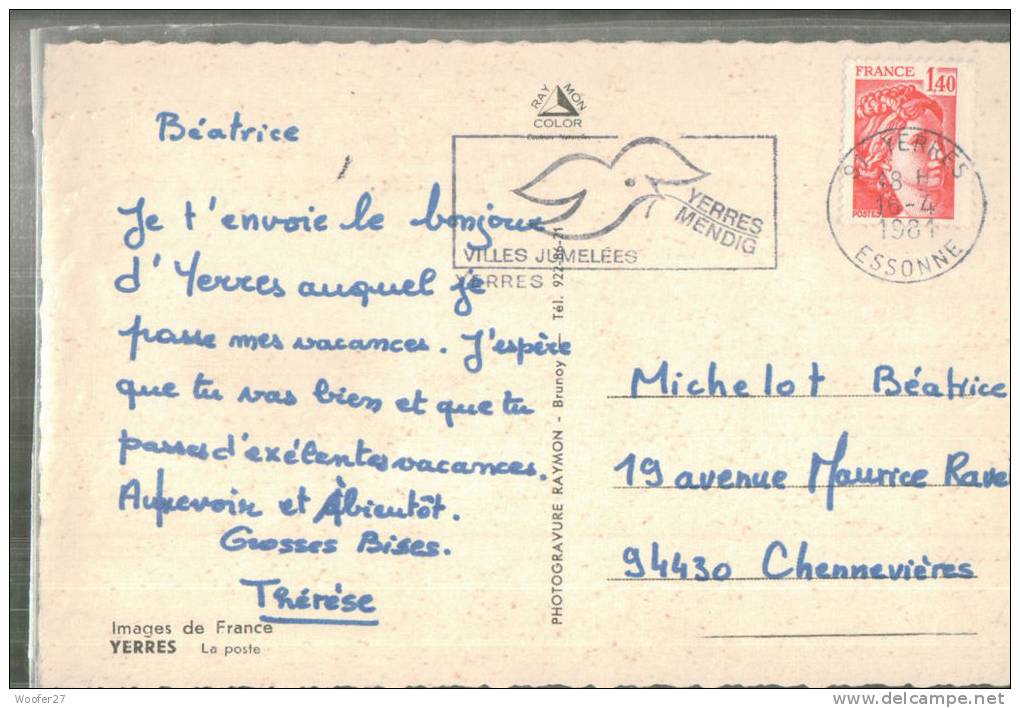 Béatrice
Je t'envoie le bonjour
d'Yerres auquel je
passe mes vacances. J'espère
que tu vas bien et que tu
passes d'exélentes vacances.
Aurevoir et Àbientôt.
Grosses Bises.
Thérèse
Images de France
YERRES La poste
RAYMON
COLOR
YERRES
MENDIG
VILLES JUMELÉES
YERRES
PHOTOGRAVURE RAYMON - Brunoy - Tél. 922-86-21
FRANCE 1,40
POSTES
91 YERRES
18 H
16-4
1981
ESSONNE
Michelot Béatrice
19 avenue Maurice Ravel
94430 Chennevières
Woofer27
www.delcampe.net